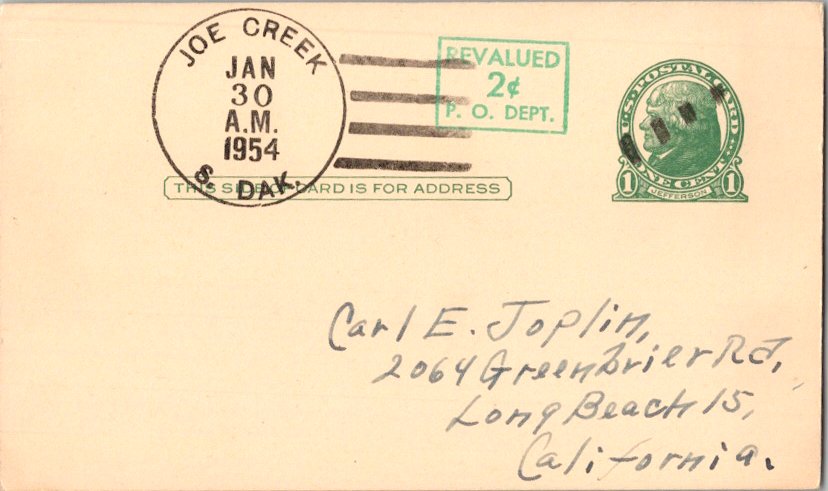 JOE CREEK
JAN
30
A.M.
1954
S. DAK.
REVALUED
2¢
P. O. DEPT.
U.S. POSTAL CARD
ONE CENT
1 JEFFERSON 1
THIS SIDE OF CARD IS FOR ADDRESS
Carl E. Joplin,
2064 Greenbrier Rd,
Long Beach 15,
California.